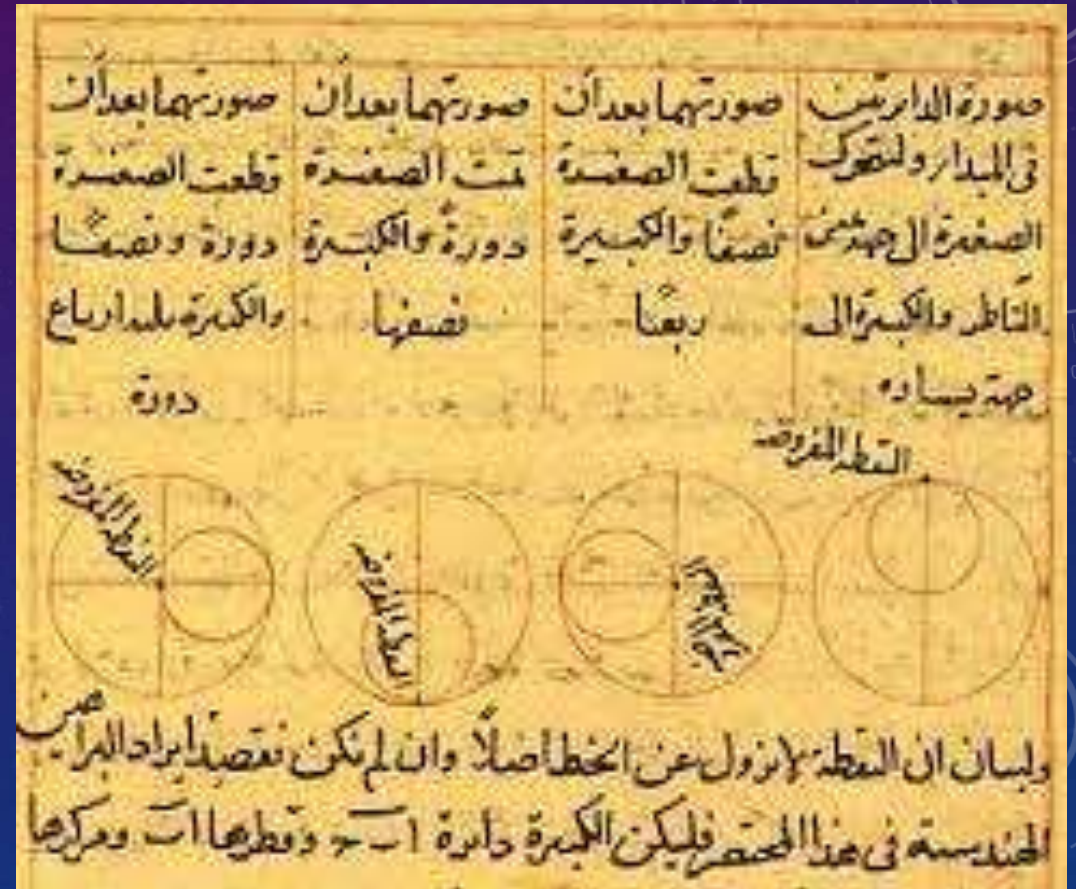 صورة الدائرتين
في المبدا ولتتحرك
الصغيرة الى جهة يمين
الناظر والكبيرة الى
جهة يساره
صورتهما بعد أن
قطعت الصغيرة
نصفًا والكبيرة
ربعًا
صورتهما بعد أن
تمت الصغيرة
دورة والكبيرة
نصفها
صورتهما بعد أن
قطعت الصغيرة
دورة ونصفًا
والكبيرة ثلثه ارباع
دورة
النقطة المفروضة
النقطة المفروضة
النقطة المفروضة
النقطة المفروضة
ولبيان ان النقطة لا تزول عن الخط اصلًا وان لم نكن نقصد ايراد البراهين
الهندسية في هذا المختصر فليكن الكبيرة دائرة اب وقطرها اب ومركزها